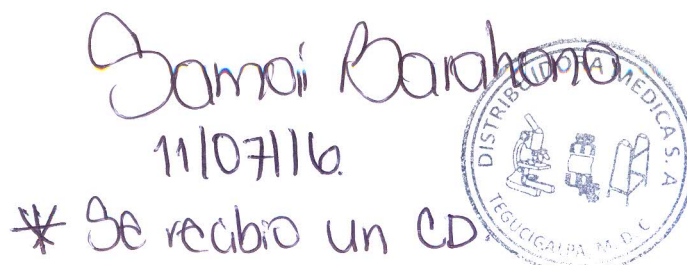 Samoi Barahona
11/07/16.
* Se recibio un CD.
DISTRIBUIDORA MEDICA S. A
TEGUCIGALPA, M. D. C